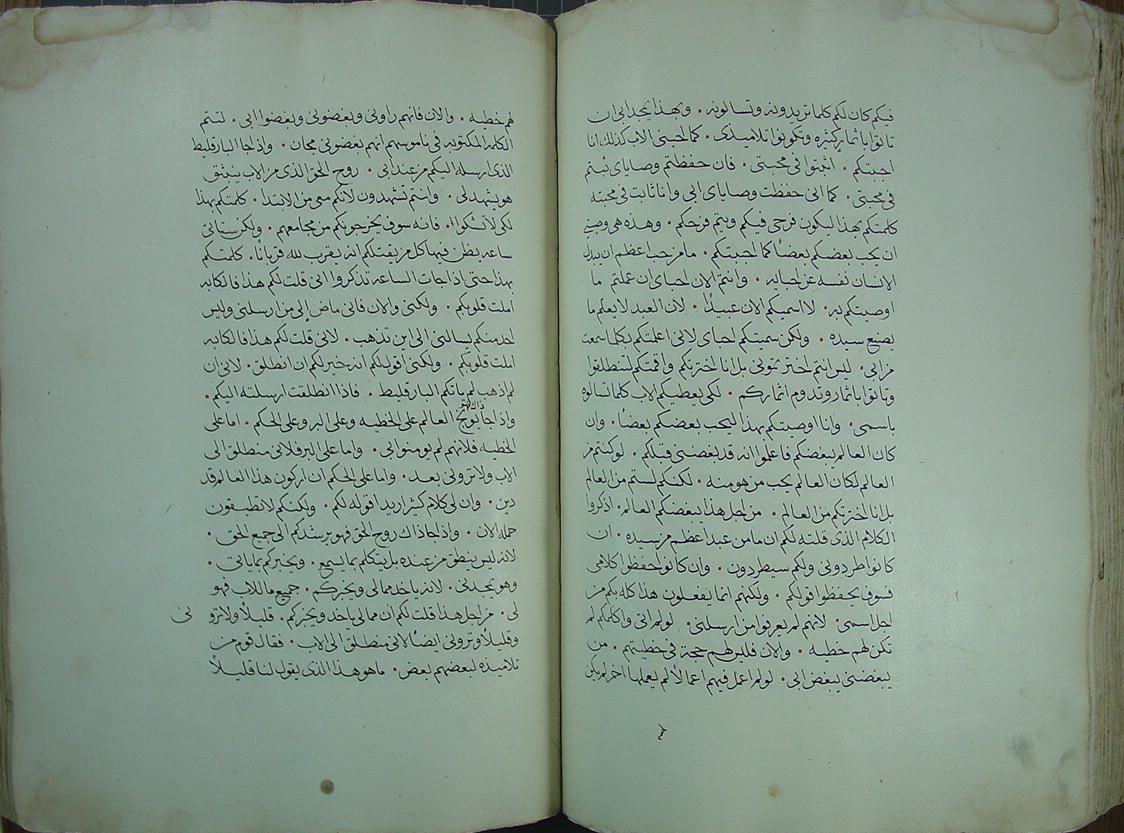 فيكم كان لكم كلما تريدونه وتسالونه • وبهذا يمجد ابى ان
تاتوا باثمار كثيره وتكونوا تلاميذى • كما احبنى الاب كذلك انا
احببتكم • اثبتوا فى محبتى • فان حفظتم وصاياى ثبتم
فى محبتى • كما انى حفظت وصاياى ابى وانا ثابت فى محبته
كلمتكم بهذا ليكون فرحى فيكم ويتم فرحكم • وهذه هى وصيتى
ان يحب بعضكم بعضًا كما احببتكم • ما من حب اعظم ان يبدل
الانسان نفسه عن احبايه • وانتم الان احباى ان عملتم ما
اوصيتكم به • لا اسميكم الان عبيدًا • لان العبد لا يعلم ما
يصنع سيده • ولكن سميتكم احباى لانى اعلمتكم بكلما سمعت
من ابى • ليس انتم اخترتمونى بل انا اخترتكم واقمتكم لتنطلقوا
وتاتوا باثمار وتدوم اثماركم • لكى يعطيكم الاب كلما تسالوه
باسمى • وانا اوصيتكم بهذا ليحب بعضكم بعضًا • وان
كان العالم يبغضكم فاعلموا انه قد بغضنى قبلكم • لو كنتم من
العالم لكان العالم يحب من هو منه • لكنكم لستم من العالم
بل انا اخترتكم من العالم • من اجل هذا يبغضكم العالم • اذكروا
الكلام الذى قلته لكم ان ما من عبد اعظم من سيده • ان
كانوا طردونى ولكم سيطردون • وان كانوا حفظوا كلامى
فسوف يحفظوا قولكم • ولكنهم انما يفعلون هذا كله بكم من
اجل اسمى • لانهم لم يعرفوا من ارسلنى • لو لم اتى واكلمكم لم
تكن لهم خطيه • والان فليس لهم حجة فى خطيتهم • من
يبغضنى يبغض ابى • لو لم اعمل فيهم اعمالاً لم يعملها اخر لم يكن
لهم خطيه • والان فانهم راونى وبغضونى وبغضوا ابى • لتتم
الكلمه المكتوبه فى ناموسهم انهم بغضونى مجان • واذ جا البارقليط
الذى ارسله اليكم من عند ابى • روح الحق الذى من الاب ينبثق
هو يشهد لى • وانتم تشهدون لانكم معى من الابتدا • كلمتكم بهذا
لكى لا تشكوا • فانه سوف يخرجونكم من مجامعهم • ولكن ستاتى
ساعه يظن فيها كل من يقتلكم انه يقرب لله قربانًا • كلمتكم
بهذا حتى اذا جات الساعه تذكروا انى قلت لكم هذا فالكابه
املت قلوبكم • ولكنى والان فانى ماض الى من ارسلنى وليس
احد منكم يسالنى الى اين تذهب • لانى قلت لكم هذا فالكابه
املت قلوبكم • ولكنى اقول لكم انه خير لكم ان انطلق • لانى ان
لم اذهب لم ياتكم البارقليط • فاذا انطلقت ارسلته اليكم •
واذ جا ذاك يوبخ العالم على الخطيه وعلى البر وعلى الحكم • اما على
الخطيه فلانهم لم يومنوا بى • واما على البر فلانى منطلق الى
الاب ولا ترونى بعد • واما على الحكم ان اركون هذا العالم قد
دين • وان لى كلام كثير اريد اقوله لكم • ولكنكم لا تطيقون
حمله الان • واذ جا ذاك روح الحق فهو يرشدكم الى جميع الحق •
لانه ليس ينطق من عنده بل يتكلم بما يسمع • ويخبركم بما ياتى •
وهو يمجدنى • لانه ياخد مما لى ويخبركم • جميع ما للاب فهو
لى • من اجل هذا قلت لكم ان مما لى ياخد ويخبركم • قليلاً ولا ترونى
وقليلاً وترونى ايضًا لانى منطلق الى الاب • فقال قوم من
تلاميذه لبعضهم بعض • ما هو هذا الذى يقول لنا قليلاً